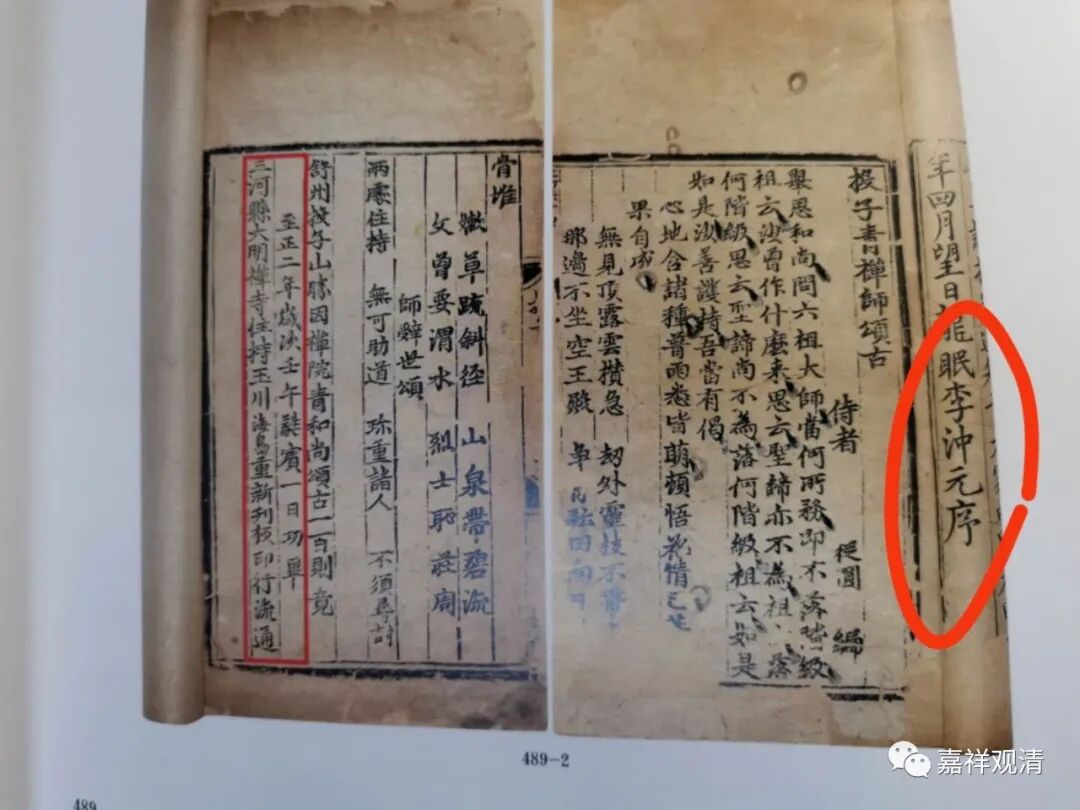 年四月望日龍眠李沖元序
投子青禪師頌古
侍者 從圓 編
舉思和尚問六祖大師當何所務即不落階級
祖云汝曾作什麽来思云聖諦亦不為祖 落
何階級思云聖諦尚不為落何階級祖云如是
如是汝善護持吾當有偈
心地含諸種普雨悉皆萌頓悟花情已
果自成
無見頂露雲攢急 劫外靈枝不帶
那邉不坐空王殿
骨堆
嫩草疏斜径 山泉帶碧流
父曾要渭水 烈士恥莊周
師辭世頌
兩處住持 無可助道 珎重諸人 不須尋討
舒州投子山勝因禪院青和尚頌古一百則竟
至正二年歲次壬午蕤賓一日功畢
三河縣大明禪寺住持玉川海島重新刊板印行流通
489-2
489
嘉祥观清